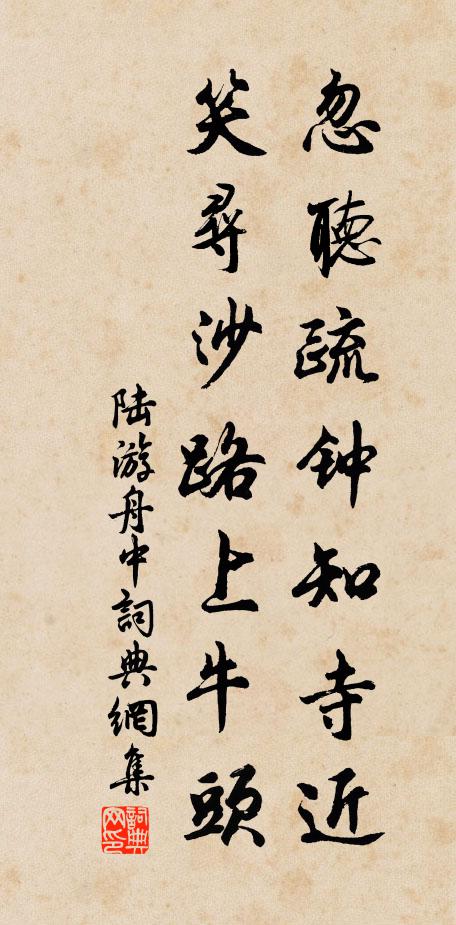 忽聽疏钟知寺近
笑尋沙路上牛頭
陆游舟中詞典網集
詞典网印